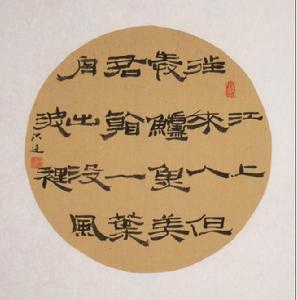 江上
往來人但
愛鱸魚美
君看一葉
舟出没風
波裡